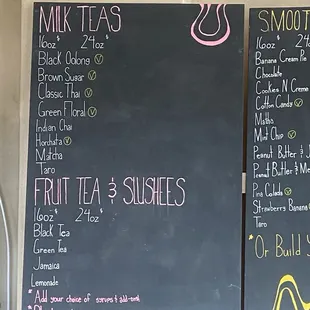 MILK TEAS
16oz $ 24oz $
Black Oolong V
Brown Sugar V
Classic Thai V
Green Floral V
Indian Chai
Horchata V
Matcha
Taro
FRUIT TEA & SLUSHEES
16oz $ 24oz $
Black Tea
Green Tea
Jamaica
Lemonade
* Add your choice of syrups & add-ons
SMOOT
16oz $ 24
Banana Cream Pie
Chocolate
Cookies N Creme
Cotton Candy V
Matcha
Mint Chip V
Peanut Butter & J
Peanut Butter & M
Pina Colada V
Strawberry Banana
Taro
*Or Build Y